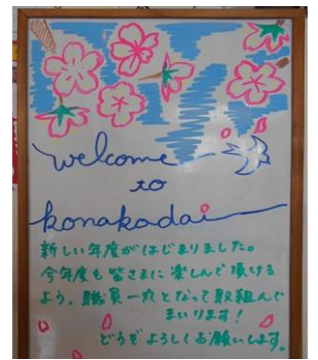 welcome
to
konakadai
新しい年度がはじまりました。
今年度も皆さまに楽しんで頂ける
よう、職員一丸となって取組んで
まいります!
どうぞよろしくお願いします。